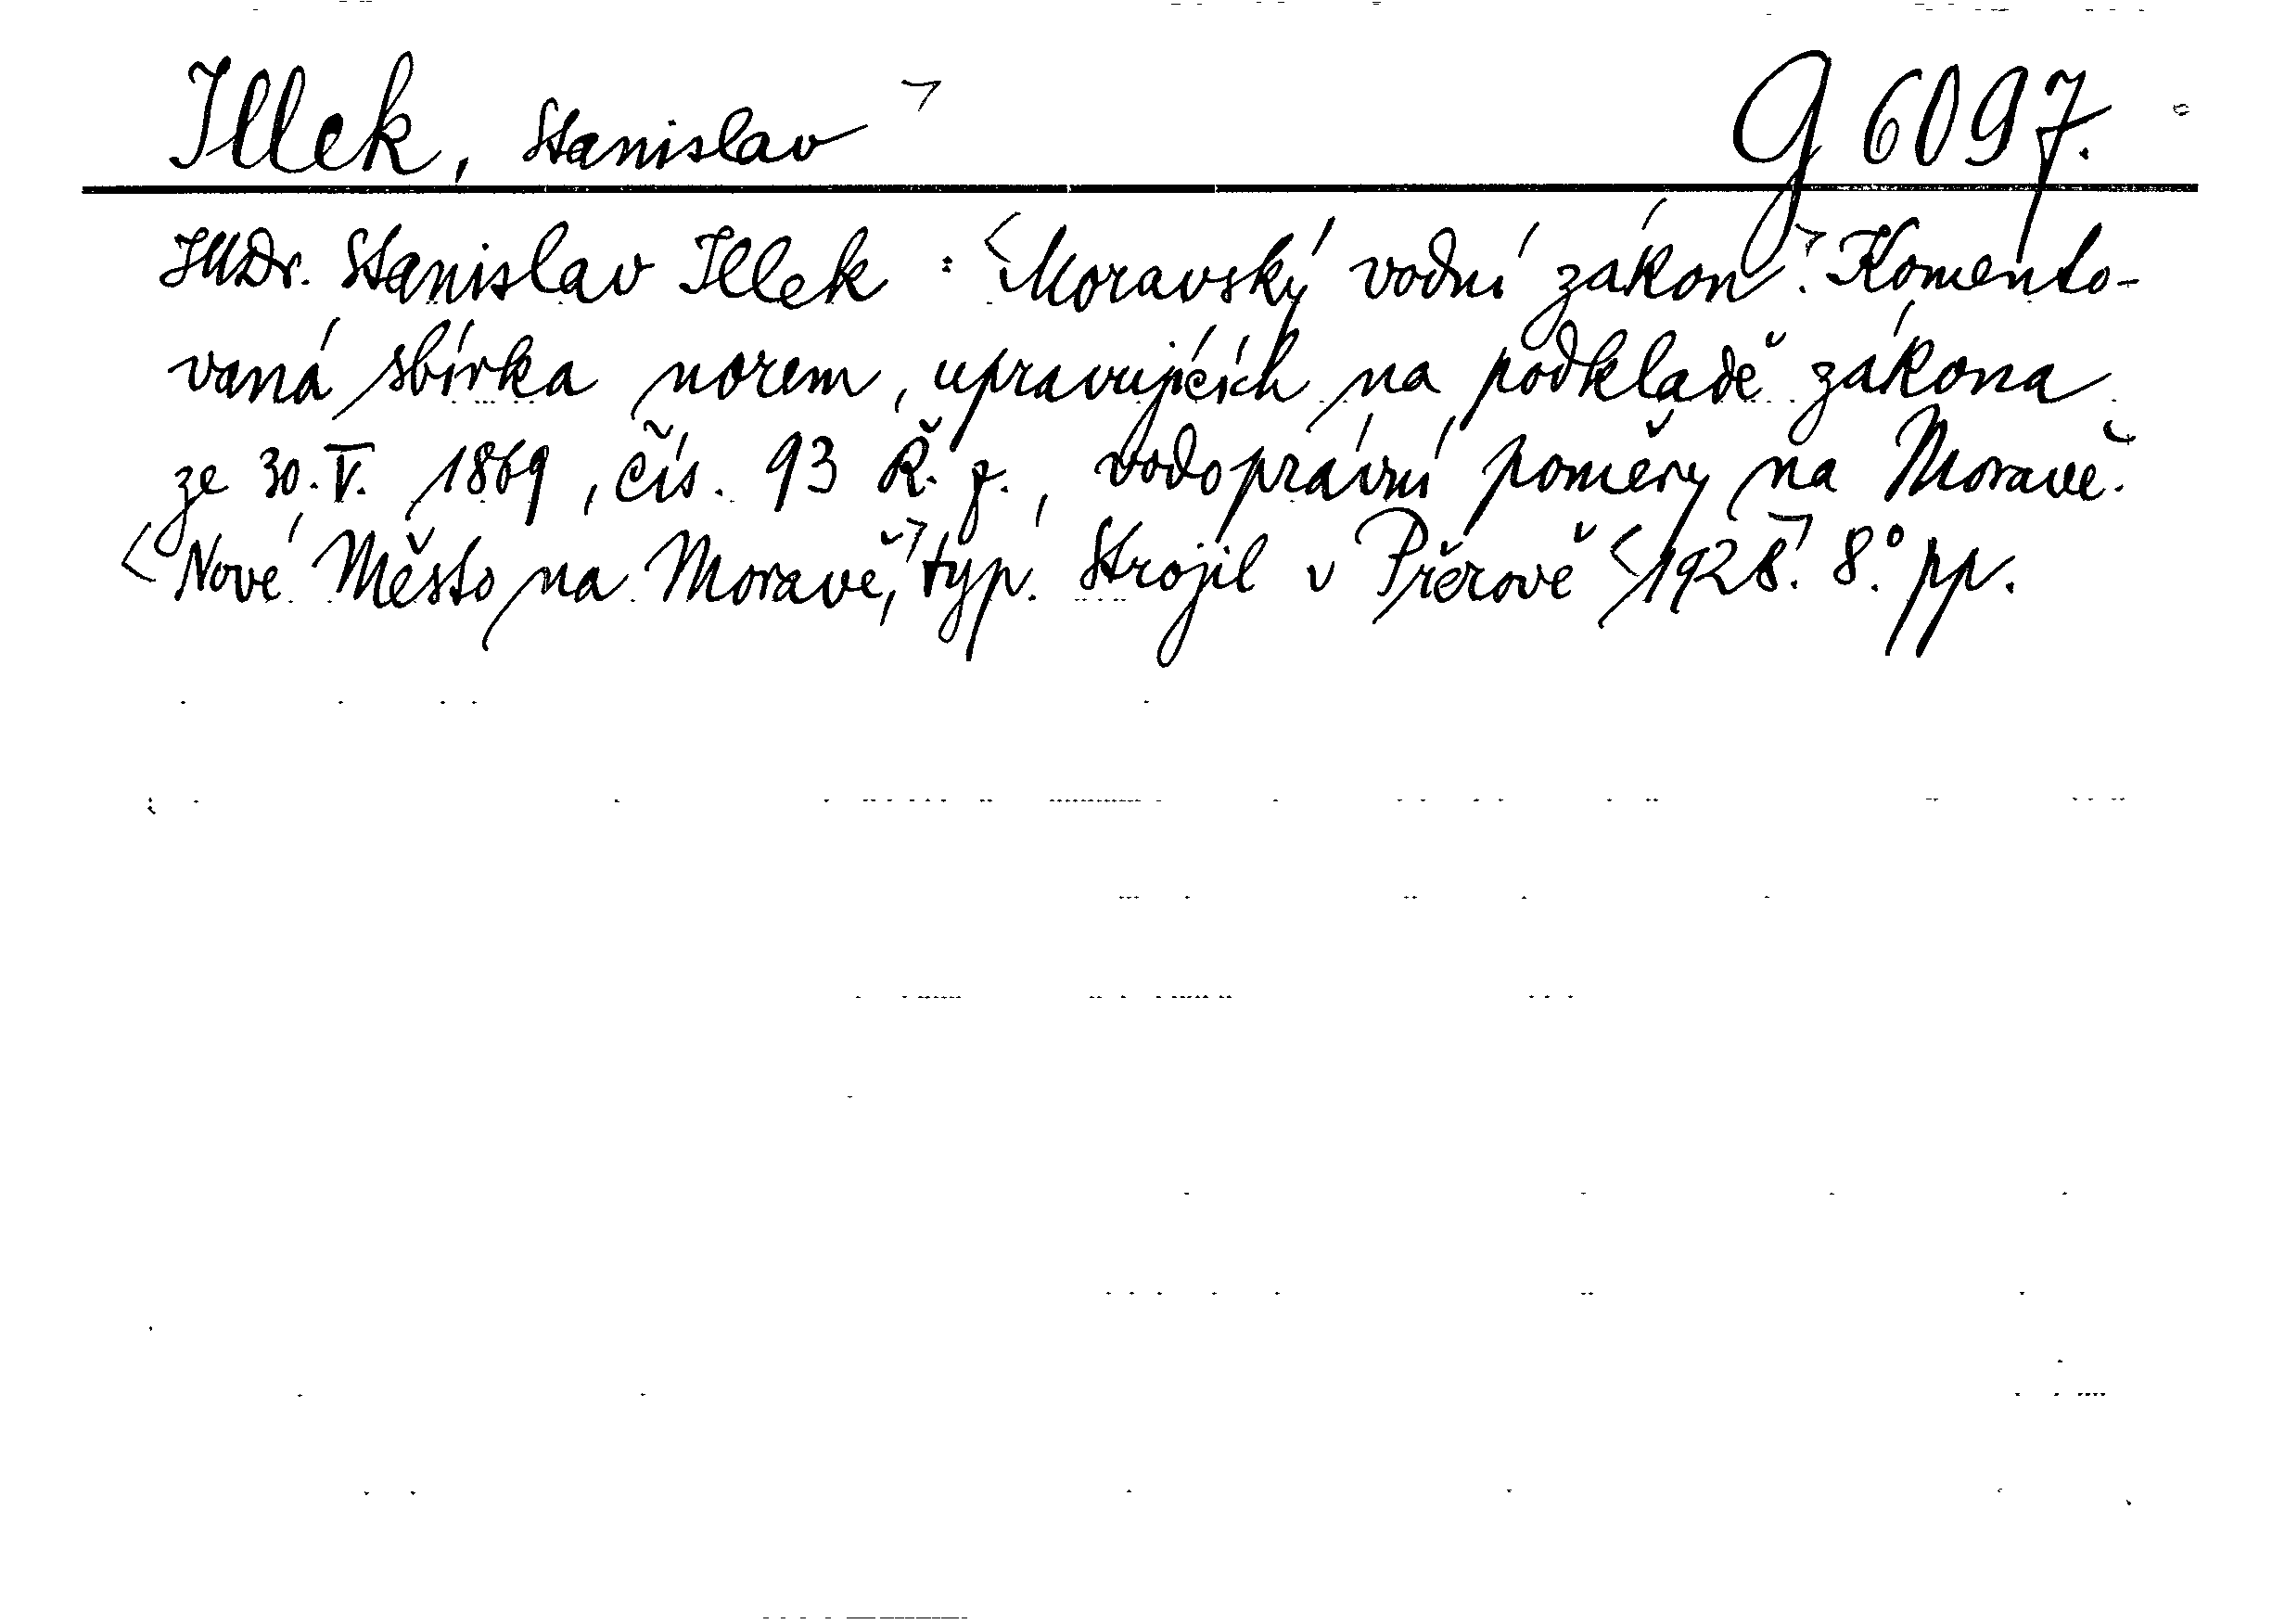 Illek, Stanislav G 6097.
JUDr. Stanislav Illek : Moravský vodní zákon. Komento-
vaná sbírka norem, upravujících na podkladě zákona
ze 30. V. 1869, čís. 93 Ř. z., vodoprávní poměry na Moravě.
Nové Město na Moravě, typ. Strojil v Přerově 1928. 8.° pp.